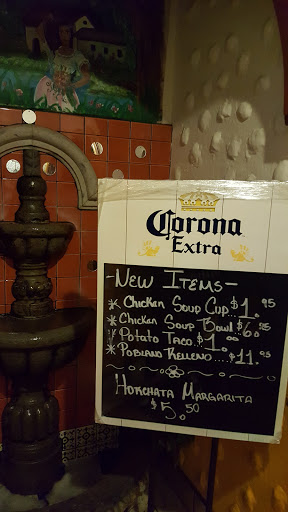 Corona
Extra
-New Items-
* Chicken Soup Cup $1.95
* Chicken Soup Bowl $6.95
* Potato Taco. $1.00
* Poblano Relleno... $11.95
Horchata Margarita
$5.50